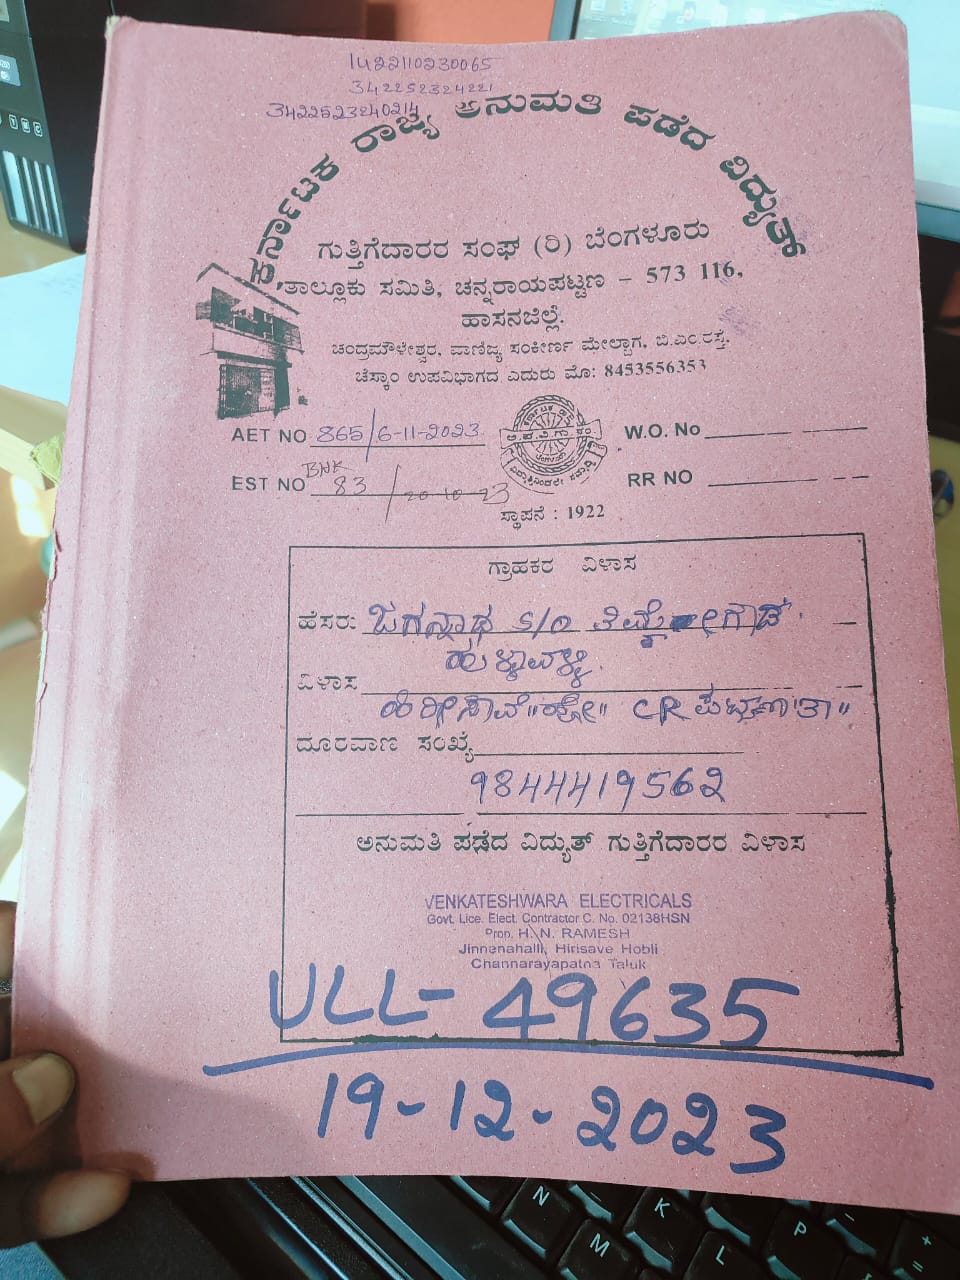 1422110230065
342252324221
3422523240214
ಕರ್ನಾಟಕ ರಾಜ್ಯ ಅನುಮತಿ ಪಡೆದ ವಿದ್ಯುತ್
ಗುತ್ತಿಗೆದಾರರ ಸಂಘ (ರಿ) ಬೆಂಗಳೂರು
ತಾಲ್ಲೂಕು ಸಮಿತಿ, ಚನ್ನರಾಯಪಟ್ಟಣ – 573 116,
ಹಾಸನಜಿಲ್ಲೆ.
ಚಂದ್ರಮೌಳೇಶ್ವರ, ವಾಣಿಜ್ಯ ಸಂಕೀರ್ಣ ಮೇಲ್ಭಾಗ, ಬಿ.ಎಂ.ರಸ್ತೆ,
ಚೆಸ್ಕಾಂ ಉಪವಿಭಾಗದ ಎದುರು ಮೊ: 8453556353
AET NO 865/6-11-2023 W.O. No
EST NO BNK 83 / 20-10-23 RR NO
ಸ್ಥಾಪನೆ : 1922
ಗ್ರಾಹಕರ ವಿಳಾಸ
ಹೆಸರು ಜಗನ್ನಾಥ S/O
ವಿಳಾಸ
CR ಪಟ್ಟಣ ತಾ"
ದೂರವಾಣಿ ಸಂಖ್ಯೆ
9844419562
ಅನುಮತಿ ಪಡೆದ ವಿದ್ಯುತ್ ಗುತ್ತಿಗೆದಾರರ ವಿಳಾಸ
VENKATESHWARA ELECTRICALS
Govt. Lice. Elect. Contractor C. No. 02138HSN
Prop. H. N. RAMESH
Jinnenahalli, Hirisave Hobli
Channarayapatna Taluk
ULL- 49635
19-12-2023